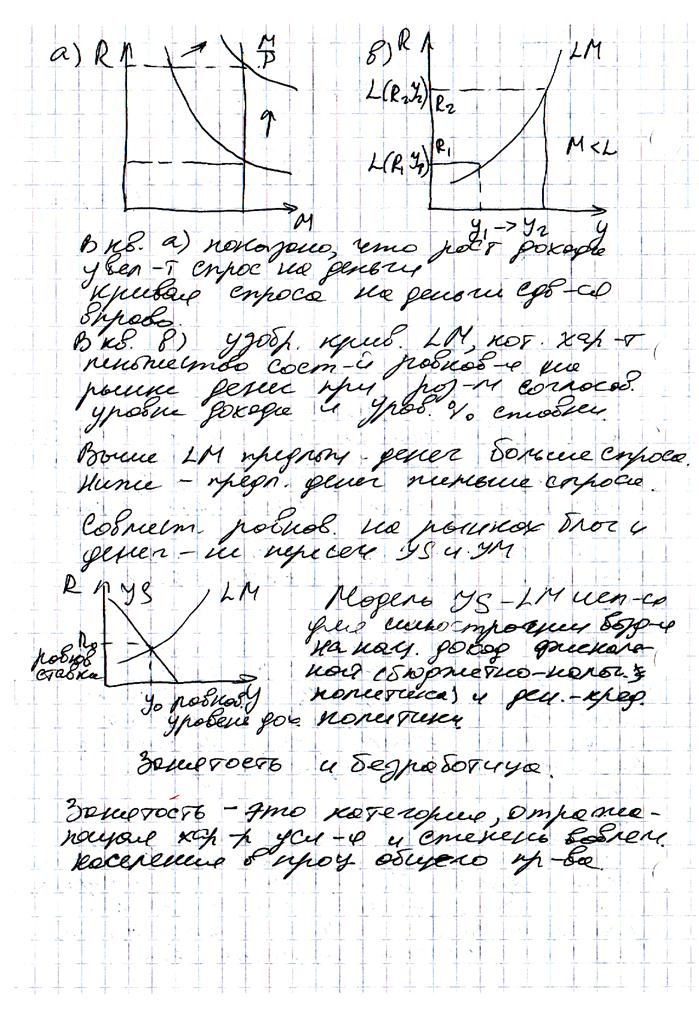 а) R M/P M
в) R LM
L(R₂ y₂) R₂
L(R₁ y₁) R₁ M<L
y₁→y₂ y
В кв. а) показано, что рост дохода
увел-т спрос на деньги
Кривая спроса на деньги сдв-ся
вправо
В кв. в) изобр. крив. LM, кот. хар-т
множество сост-й равнов-я на
рынке денег при раз-м согласов.
уровне дохода и уров. % ставки.
Выше LM предлож. денег больше спроса.
Ниже – предл. денег меньше спроса.
Совмест. равнов. на рынках благ и
денег – пересеч YS и YM
R YS LM
R₀
равнов
ставка
y₀ равнов. y
уровень дох.
Модель YS–LM исп-ся
для иллюстрации возд-я
на нац. доход фискаль-
ной (бюджетно-налог.
политика) и ден.-кред.
политики
Занятость и безработица.
Занятость – это категория, отража-
ющая хар-р усл-я и степень вовлеч.
населения в проц общего пр-ва.